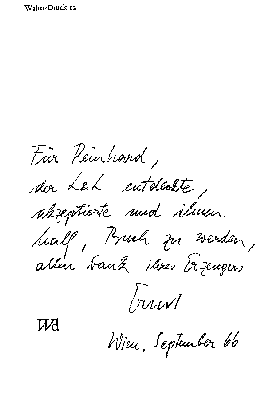 Walter-Druck 12
Für Reinhard,
der L&L entdeckte,
akzeptierte und ihnen
half, Buch zu werden,
allen Dank ihres Erzeugers
Ernst
Wien, September 66